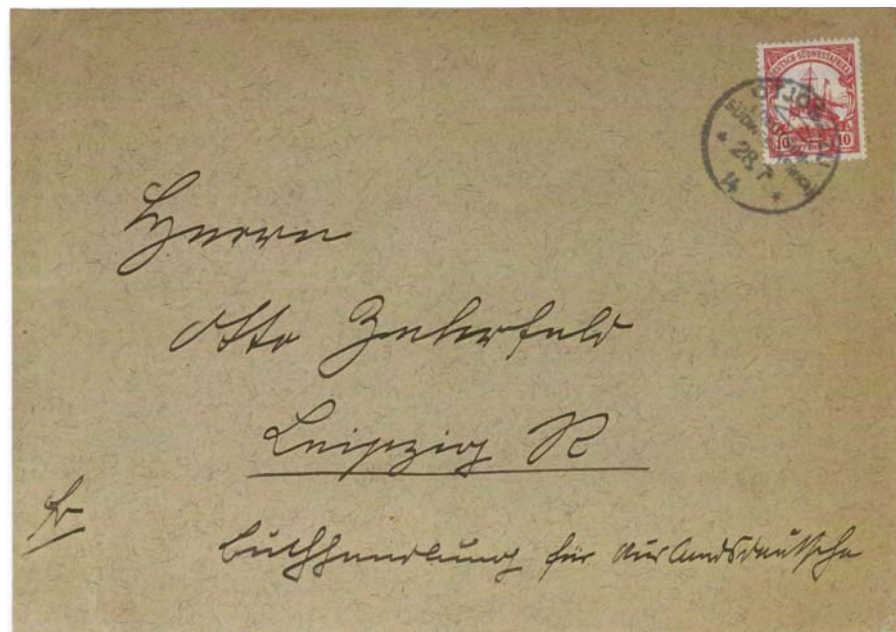 DEUTSCH-SÜDWESTAFRIKA
10
28.7.
14
Herrn
Otto Zehrfeld
Leipzig R
Fr
Buchhandlung für Auslandsdeutsche